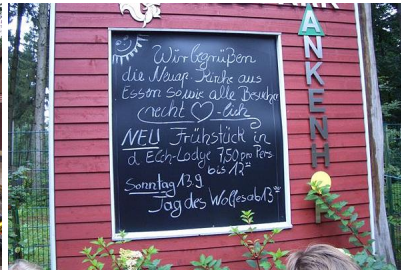 ANKENHOF
Wir begrüßen
die Neuap. Kirche aus
Essen sowie alle Besucher
recht ♡-lich
NEU Frühstück in
d. Elch-Lodge 7,50 pro Pers.
bis 12⁰⁰
Sonntag 13.9
Tag des Wolfes ab 13⁰⁰